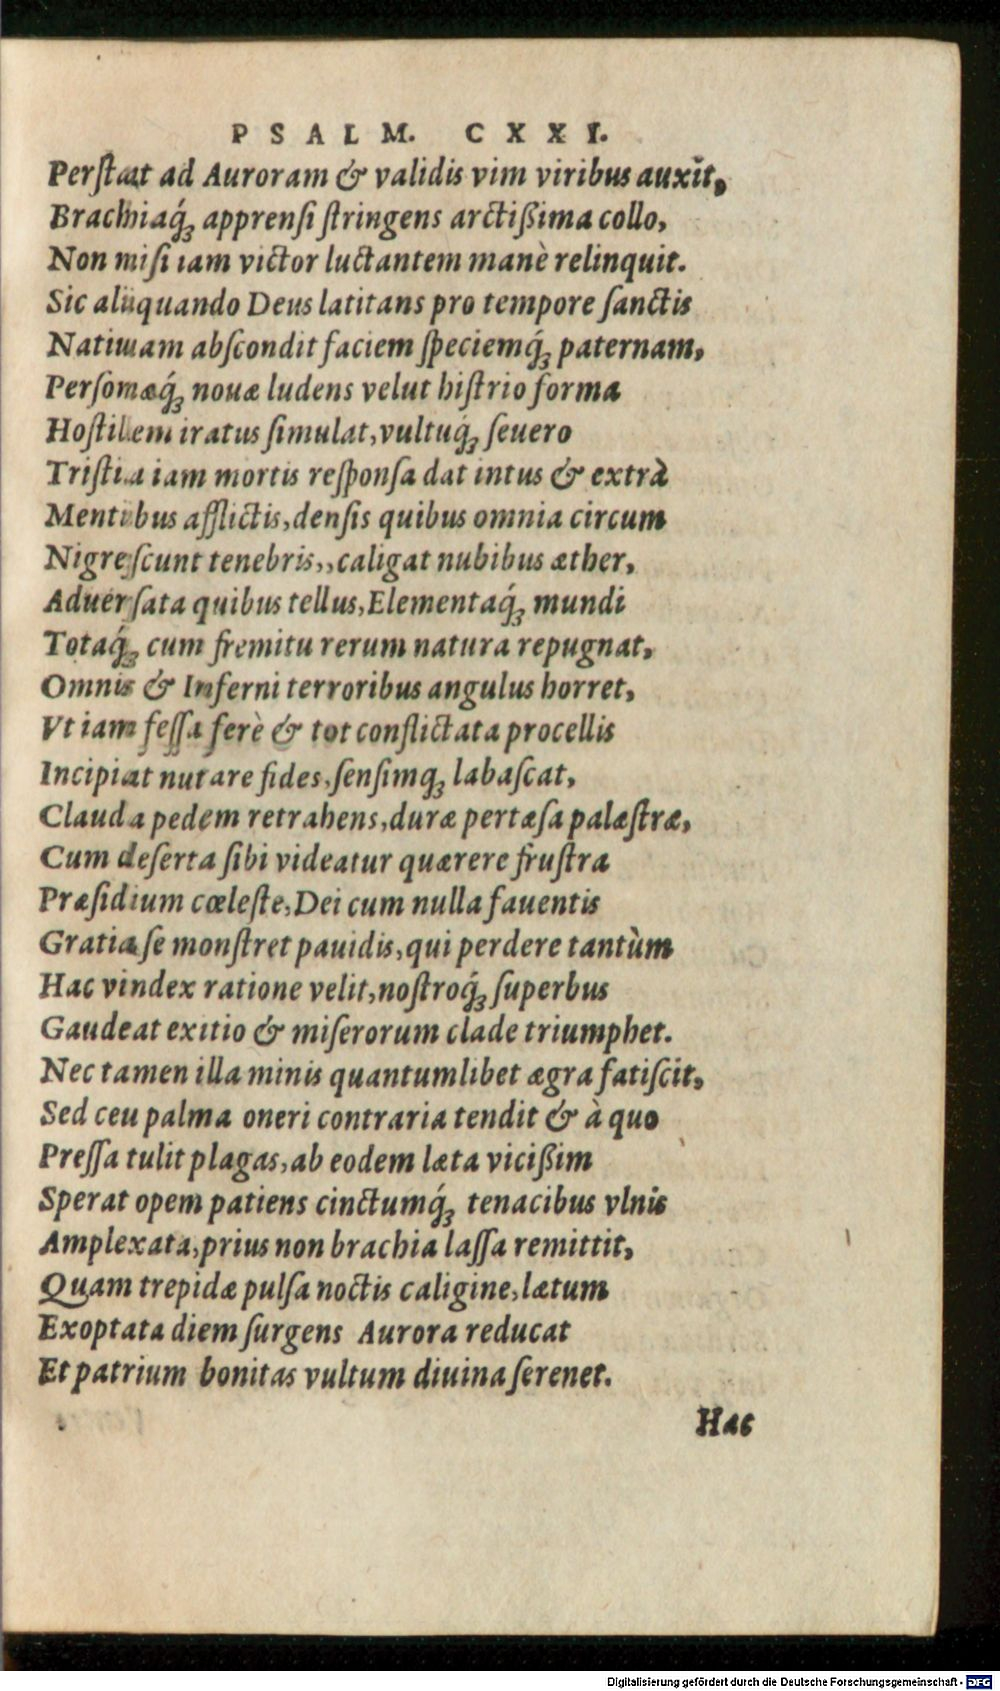 PSALM. CXXI.
Perſtat ad Auroram & validis vim viribus auxit,
Brachiaq́ꝫ apprenſi ſtringens arctißima collo,
Non niſi iam victor luctantem manè relinquit.
Sic aliquando Deus latitans pro tempore ſanctis
Natiuam abſcondit faciem ſpeciemq́ꝫ paternam,
Perſonæq́ꝫ nouæ ludens velut hiſtrio forma
Hoſtilem iratus ſimulat, vultuq́ꝫ ſeuero
Triſtia iam mortis reſponſa dat intus & extrà
Mentibus afflictis, denſis quibus omnia circum
Nigreſcunt tenebris,, caligat nubibus æther,
Aduerſata quibus tellus, Elementaq́ꝫ mundi
Totaq́ꝫ cum fremitu rerum natura repugnat,
Omnis & Inferni terroribus angulus horret,
Vt iam feſſa ferè & tot conflictata procellis
Incipiat nutare fides, ſenſimqꝫ labaſcat,
Clauda pedem retrahens, duræ pertæſa palæſtræ,
Cum deſerta ſibi videatur quærere fruſtra
Præſidium cœleſte, Dei cum nulla fauentis
Gratia ſe monſtret pauidis, qui perdere tantùm
Hac vindex ratione velit, noſtroq́ꝫ ſuperbus
Gaudeat exitio & miſerorum clade triumphet.
Nec tamen illa minis quantumlibet ægra fatiſcit,
Sed ceu palma oneri contraria tendit & à quo
Preſſa tulit plagas, ab eodem læta vicißim
Sperat opem patiens cinctumq́ꝫ tenacibus vlnis
Amplexata, prius non brachia laſſa remittit,
Quam trepidæ pulſa noctis caligine, lætum
Exoptata diem ſurgens Aurora reducat
Et patrium bonitas vultum diuina ſerenet.
Hac
Digitalisierung gefördert durch die Deutsche Forschungsgemeinschaft - DFG